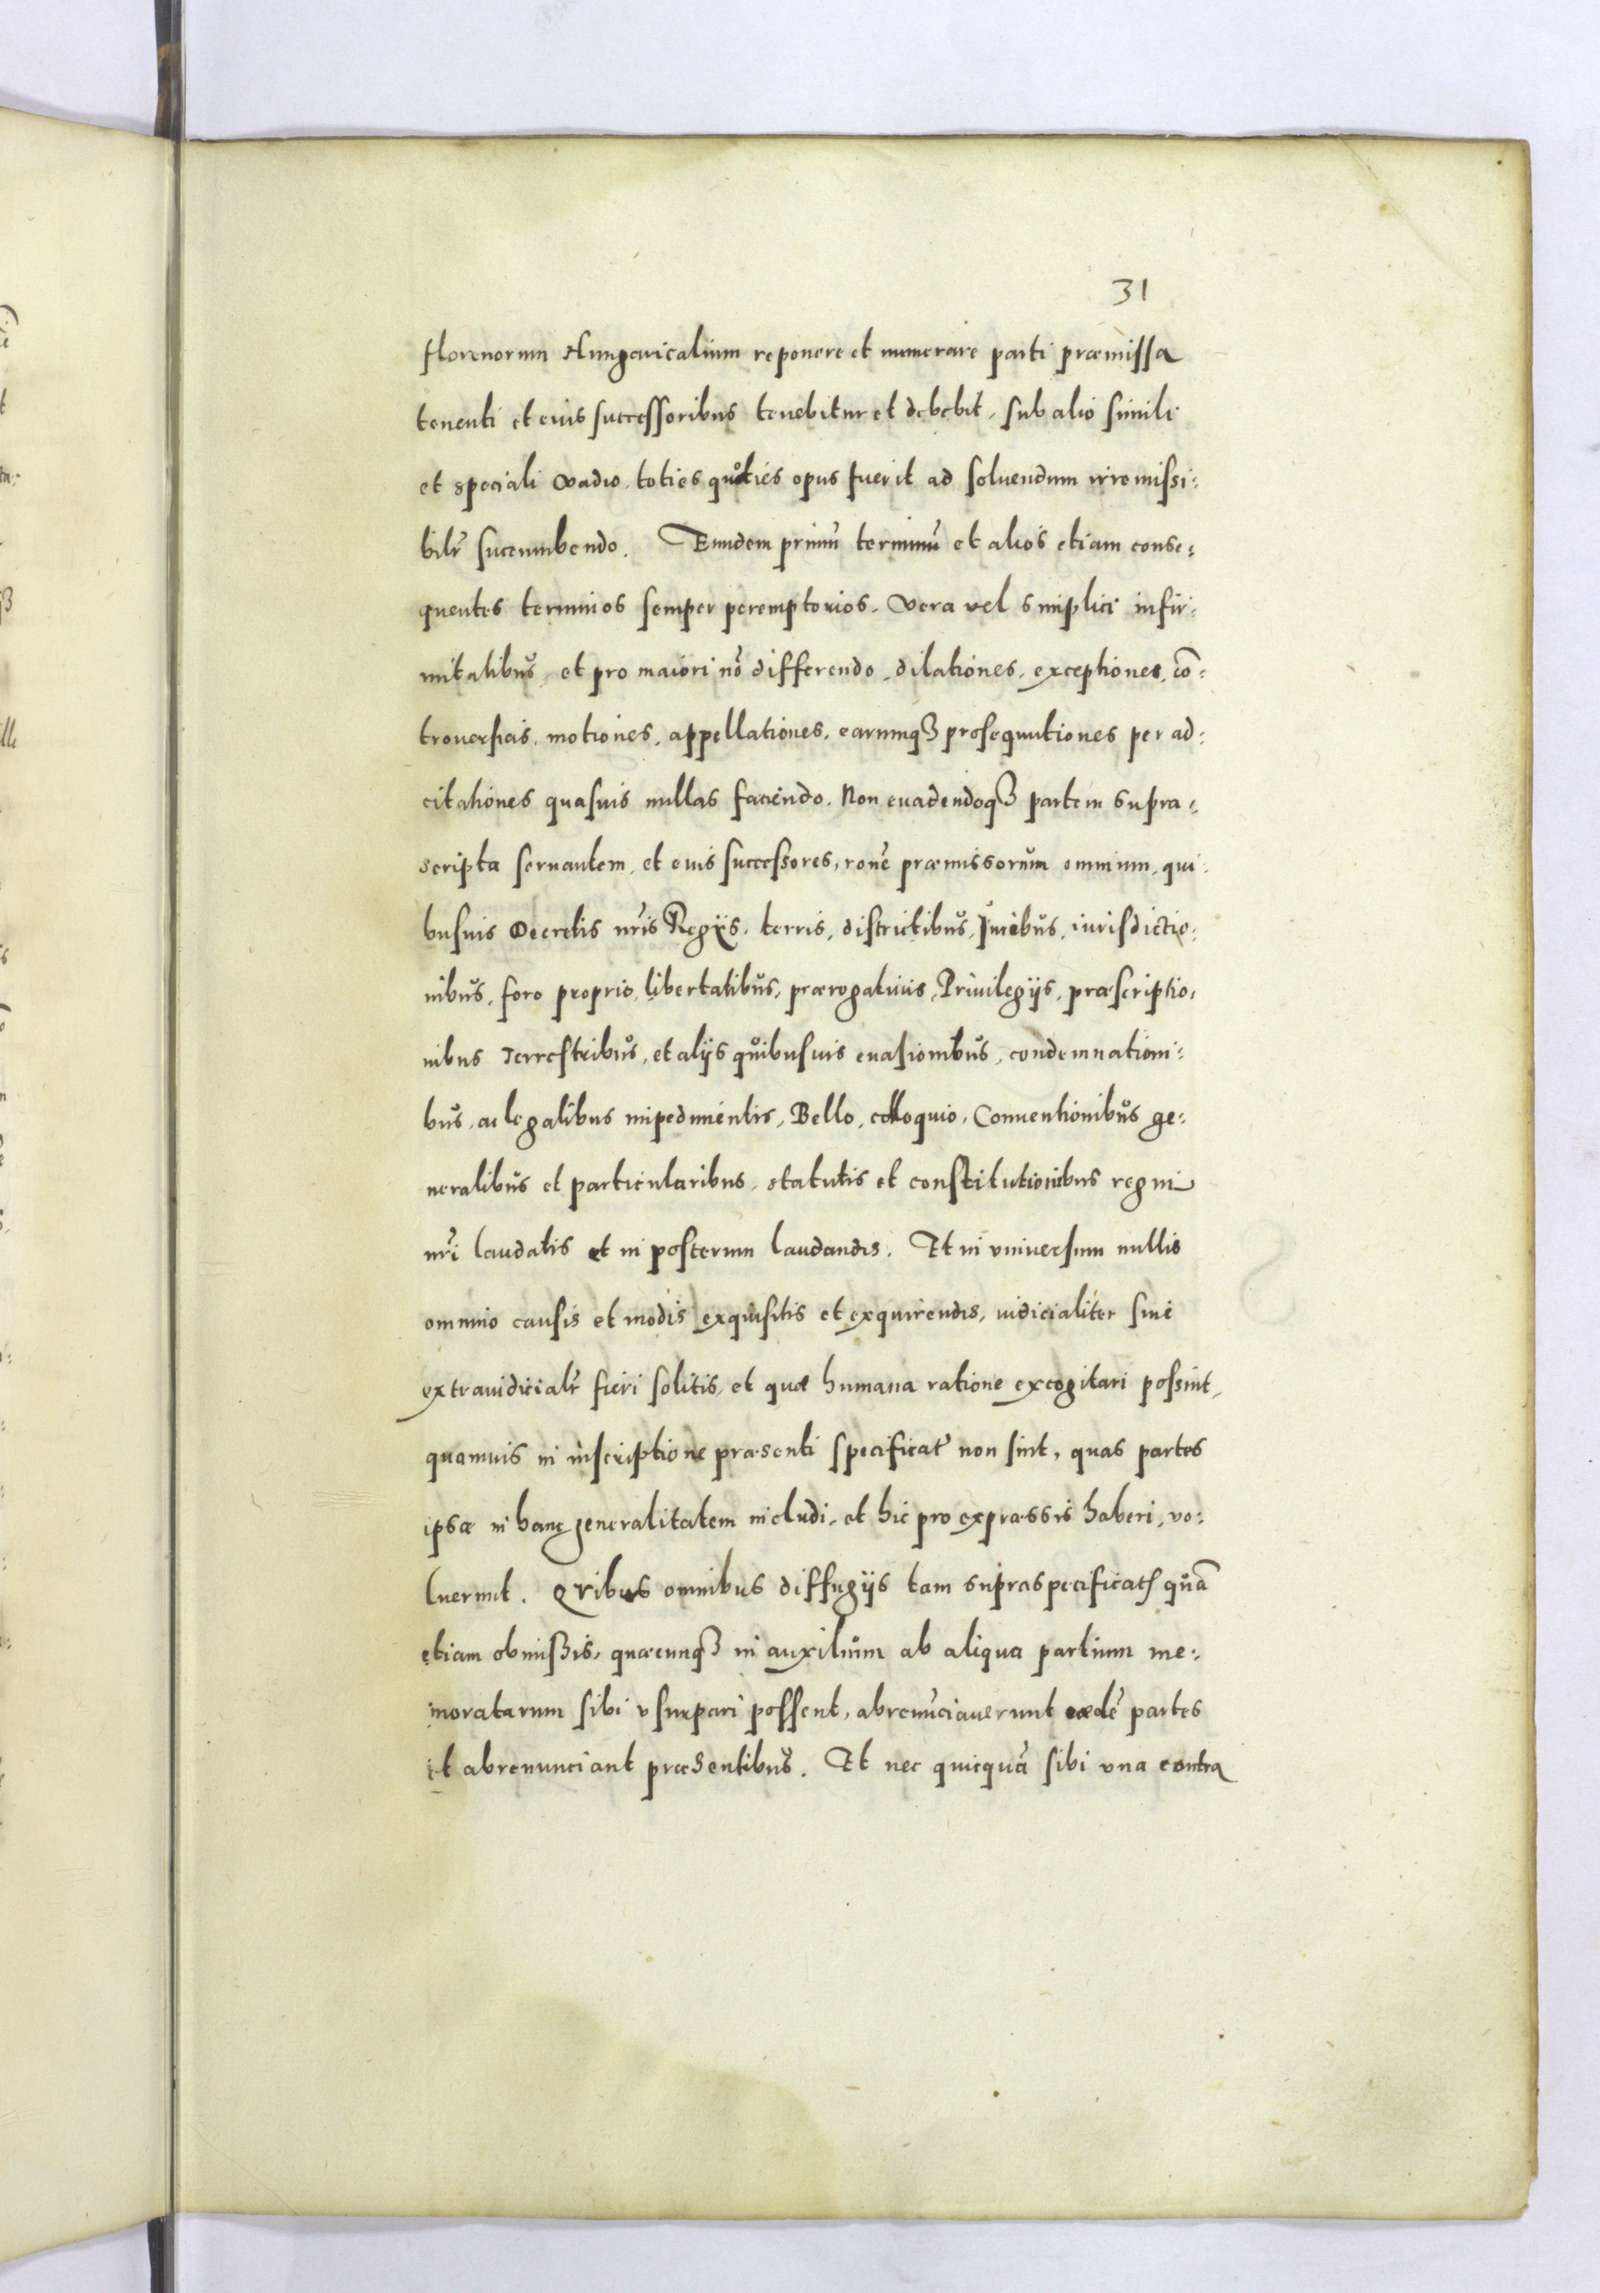 31
florenorum Hungaricalium reponere et numerare parti præmissa
tenenti et eius successoribus tenebitur et debebit, sub alio simili
et speciali vadio, toties quoties opus fuerit ad soluendum irremissi:
bilr̃ succumbendo. Eundem primũ terminũ et alios etiam conse:
quentes terminos semper peremptorios, vera vel simplici infir:
mitatibus, et pro maiori nõ differendo, dilationes, exceptiones, cõ:
trouersias, motiones, appellationes, earumqꝫ prosequutiones per ad:
citationes quasuis nullas faciendo. Non euadendoqꝫ partem supra:
scripta seruantem, et eius successores, ronẽ præmissorum omnium, qui:
busuis Decretis nr̃is Regijs, terris, districtibus, Iuribus, iurisdictio:
nibus, foro proprio, libertatibus, prærogatiuis, Priuilegijs, præscriptio:
nibus Terrestribus, et alijs quibusuis euasionibus, condemnationi:
bus, ac legalibus impedimentis, Bello, colloquio, Conuentionibus ge:
neralibus et particularibus, statutis et constitutionibus regni
nr̃i laudatis et in posterum laudandis. Et in vniuersum nullis
omnino causis et modis exquisitis et exquirendis, iudicialiter siue
extraiudicialr̃ fieri solitis, et quæ humana ratione excogitari possint,
quamuis in inscriptione præsenti specificat̃ non sint, quas partes
ipsæ in hanc generalitatem includi, et hic pro expræssis haberi, vo:
luerunt. Quibus omnibus diffugijs tam supraspecificatꝭ quã
etiam obmissis, quæcunqꝫ in auxilium ab aliqua partium me:
moratarum sibi vsurpari possent, abrenũciauerunt eædẽ partes
et abrenunciant præsentibus. Et nec quicquã sibi vna contra